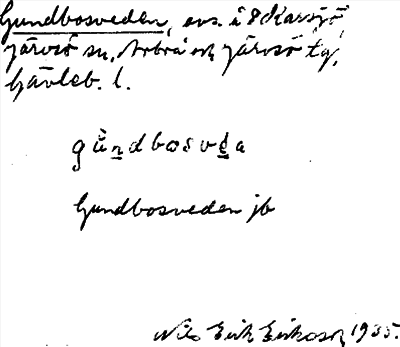 Gundbosveden, avs. å 8 Karsjö
Järvsö sn, Arbrå och Järvsö tg,
Gävleb. l.
gùndbosvda
Gundbosveden jb
Nils Erik Eriksson 1935.